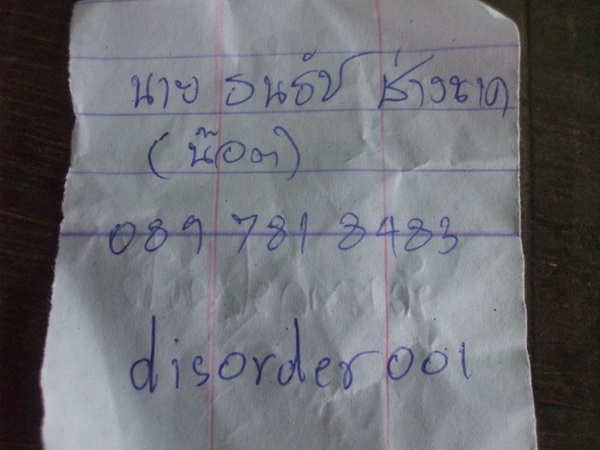 นาย ธนธัช ช่างชาด
(น๊อต)
089 781 8483
disorder001